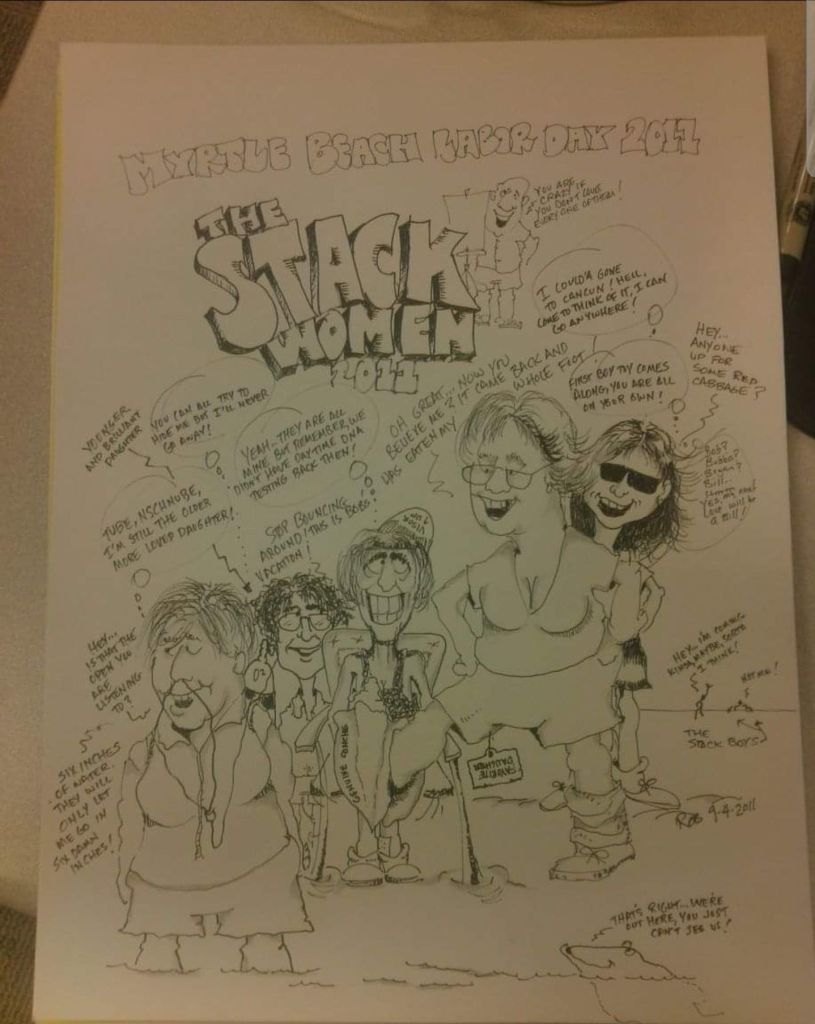 MYRTLE BEACH LABOR DAY 2011
THE
STACK
WOMEN
2011
YOU ARE
CRAZY IF
YOU DON'T LOVE
EVERY ONE OF THEM!
I COULD'A GONE
TO CANCUN! HELL,
COME TO THINK OF IT, I CAN
GO ANYWHERE!
HEY...
ANYONE
UP FOR
SOME RED
CABBAGE?
FIRST BOY TOY COMES
ALONG, YOU ARE ALL
ON YOUR OWN!
OH GREAT... NOW YOU
BELIEVE ME? IT CAME BACK AND
HAS EATEN MY WHOLE FOOT
YOU CAN ALL TRY TO
HIDE ME BUT I'LL NEVER
GO AWAY!
YOUNGER
AND BRILLIANT
DAUGHTER
YEAH.. THEY ARE ALL
MINE, BUT REMEMBER, WE
DIDN'T HAVE DAYTIME DNA
TESTING BACK THEN!
TUBE, NSCHNUBE,
I'M STILL THE OLDER
MORE LOVED DAUGHTER!
STOP BOUNCING
AROUND! THIS IS BOBS'
VACATION!
VISOR
Bob?
Bubba?
Bill..
YES, MY NEXT
LOVE WILL BE
A BILL!
HEY...
IS THAT THE
OPEN YOU
ARE
LISTENING
TO?
SIX INCHES
OF WATER.
THEY WILL
ONLY LET
ME GO IN
SIX DAMN
INCHES!
GENUINE CONCHO
FAVORITE
DAUGHTER
HEY.. I'M COMING
KINDA, MAYBE, SORTA
I THINK!
NOT ME!
THE
STACK BOYS
ROB 9-4-2011
THAT'S RIGHT... WE'RE
OUT HERE, YOU JUST
CAN'T SEE US!